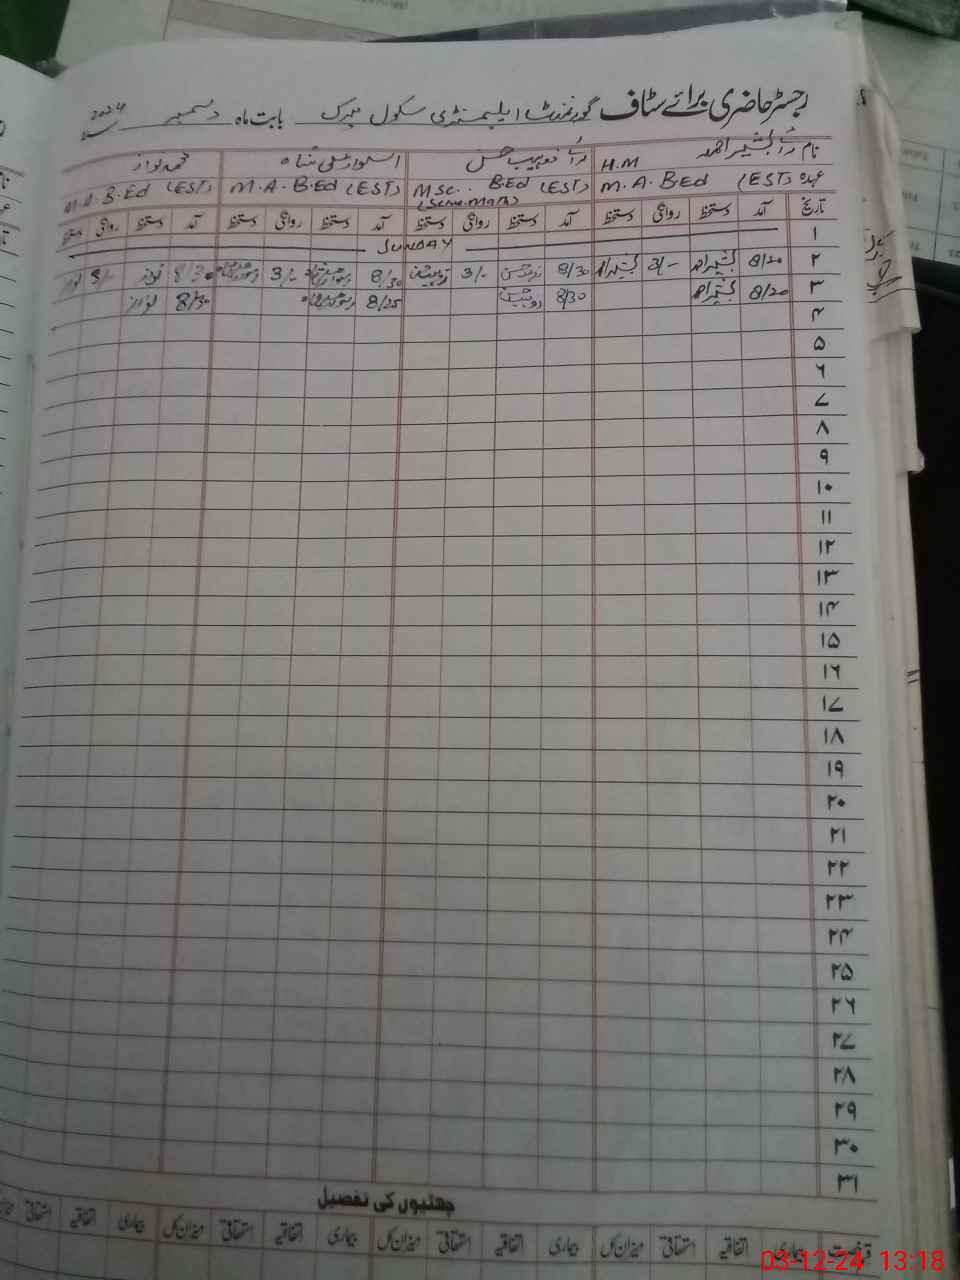 رجسٹر حاضری برائے سٹاف گورنمنٹ ایلیمنٹری سکول بابت ماہ دسمبر سن 2024
نام رائے بشیر احمد H.M رائے زوہیب حسن شاہ محمد نواز
عہدہ (EST) M.A. B.Ed (EST) B.Ed MSc. (EST) M.A. B.Ed (EST) M.A. B.Ed
تاریخ آمد دستخط روانگی دستخط آمد دستخط روانگی دستخط آمد دستخط روانگی دستخط آمد دستخط روانگی دستخط
۱ SUNDAY
۲ 8/20 بشیر احمد 3/- بشیر احمد 8/30 زوہیب حسن 3/- 8/30 3/- 8/30 نواز 3/- نواز
۳ 8/20 بشیر احمد 8/30 8/25 8/30 نواز
۴
۵
۶
۷
۸
۹
۱۰
۱۱
۱۲
۱۳
۱۴
۱۵
۱۶
۱۷
۱۸
۱۹
۲۰
۲۱
۲۲
۲۳
۲۴
۲۵
۲۶
۲۷
۲۸
۲۹
۳۰
۳۱
چھٹیوں کی تفصیل
بیماری اتفاقیہ استحقاقی میزان کل بیماری اتفاقیہ استحقاقی میزان کل بیماری اتفاقیہ استحقاقی میزان کل بیماری اتفاقیہ استحقاقی
03-12-24 13:18